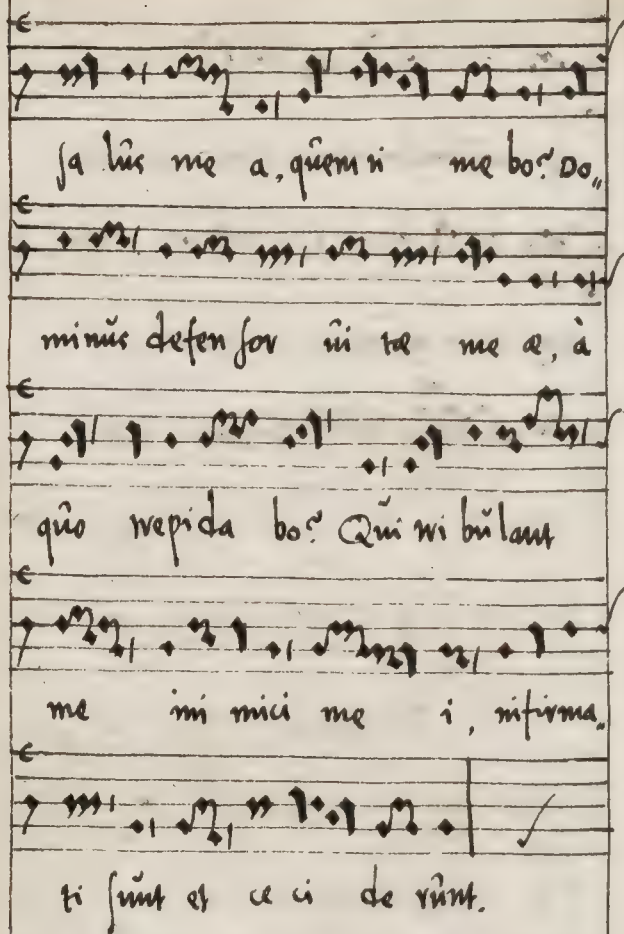 sa lus me a, quem ti me bo? Do„
minus defen sor vi tæ me æ, à
quo trepida bo? Qui tri bulant
me ini mici me i, infirma„
ti sunt et ce ci de runt.